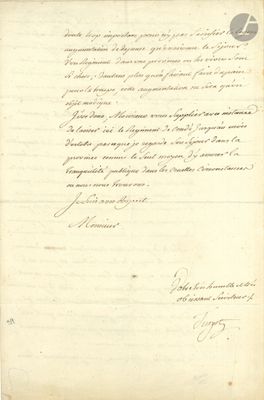 trop important pour n'y pas sacrifier
augmentation de depense qu'occasionne le sejour
d'un Regiment dans une province ou les vivres sont
si chers; d'autant plus qu'en faisant
pour la troupe, cette augmentation ne sera qu'un
objet modique.
J'ose donc, Monsieur vous supplier avec instance
de laisser ici le Regiment de Condé jusqu'au mois
d'octobre parceque je regarde son sejour dans la
province comme le seul moyen d'y assurer la
tranquilité publique dans les circonstances
ou nous nous trouvons.
Je suis avec respect
Monsieur
Votre tres humble et tres
obeissant Serviteur
Turgot